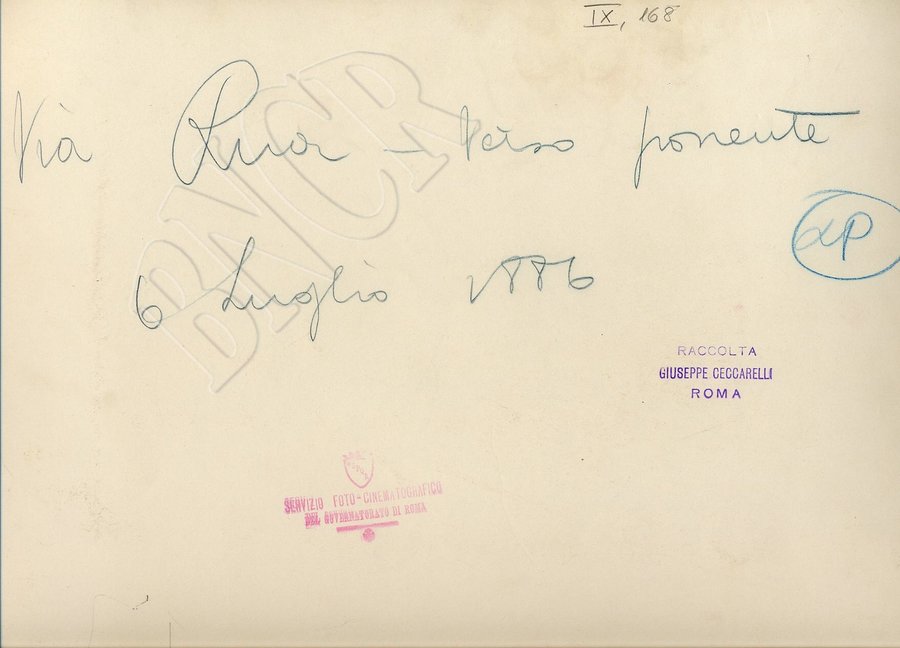 IX, 168
Via Rua - Verso ponente
XP
6 Luglio 1886
BNCR
RACCOLTA
GIUSEPPE CECCARELLI
ROMA
SERVIZIO FOTO-CINEMATOGRAFICO
DEL GOVERNATORATO DI ROMA